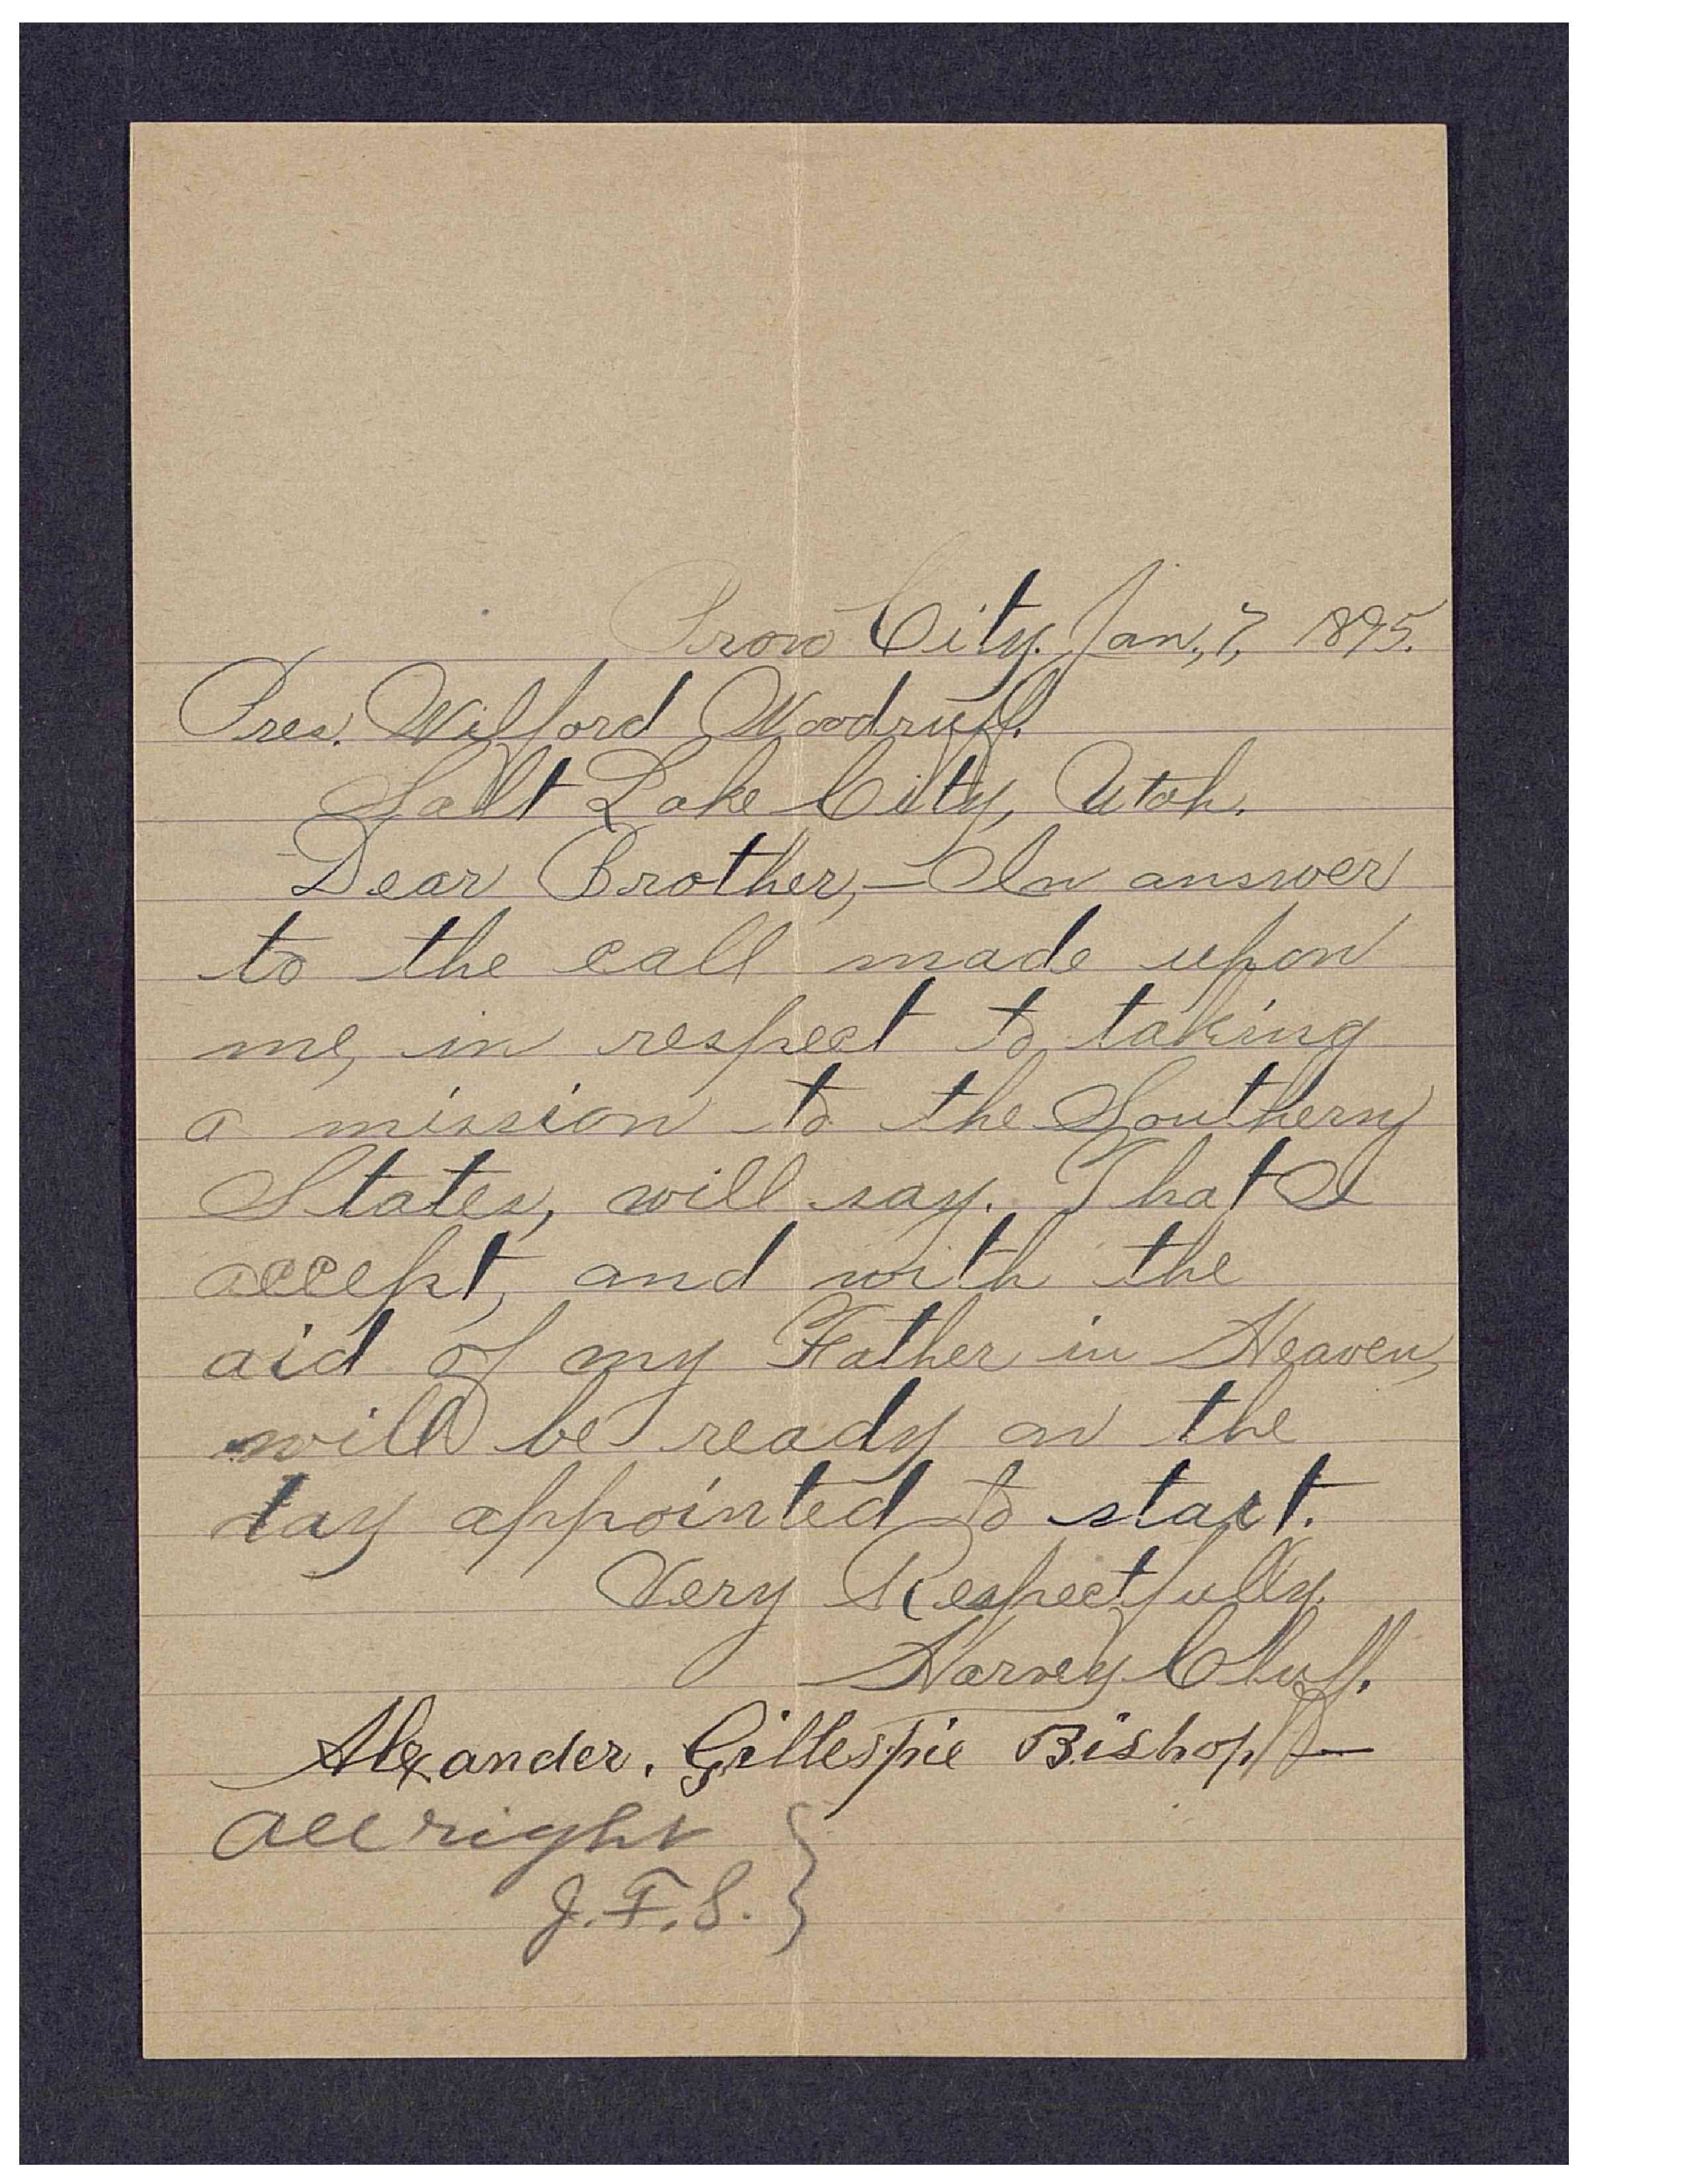 Provo City. Jan., 7, 1895.
Pres. Wilford Woodruff.
Salt Lake City, Utah.
Dear Brother,— In answer
to the call made upon
me, in respect to taking
a mission to the Southern
States, will say. That I
accept, and with the
aid of my Father in Heaven,
will be ready on the
day appointed to start.
Very Respectfully.
Harvey Cluff.
Alexander. Gillespie Bishop —
All right
J. F. S. }